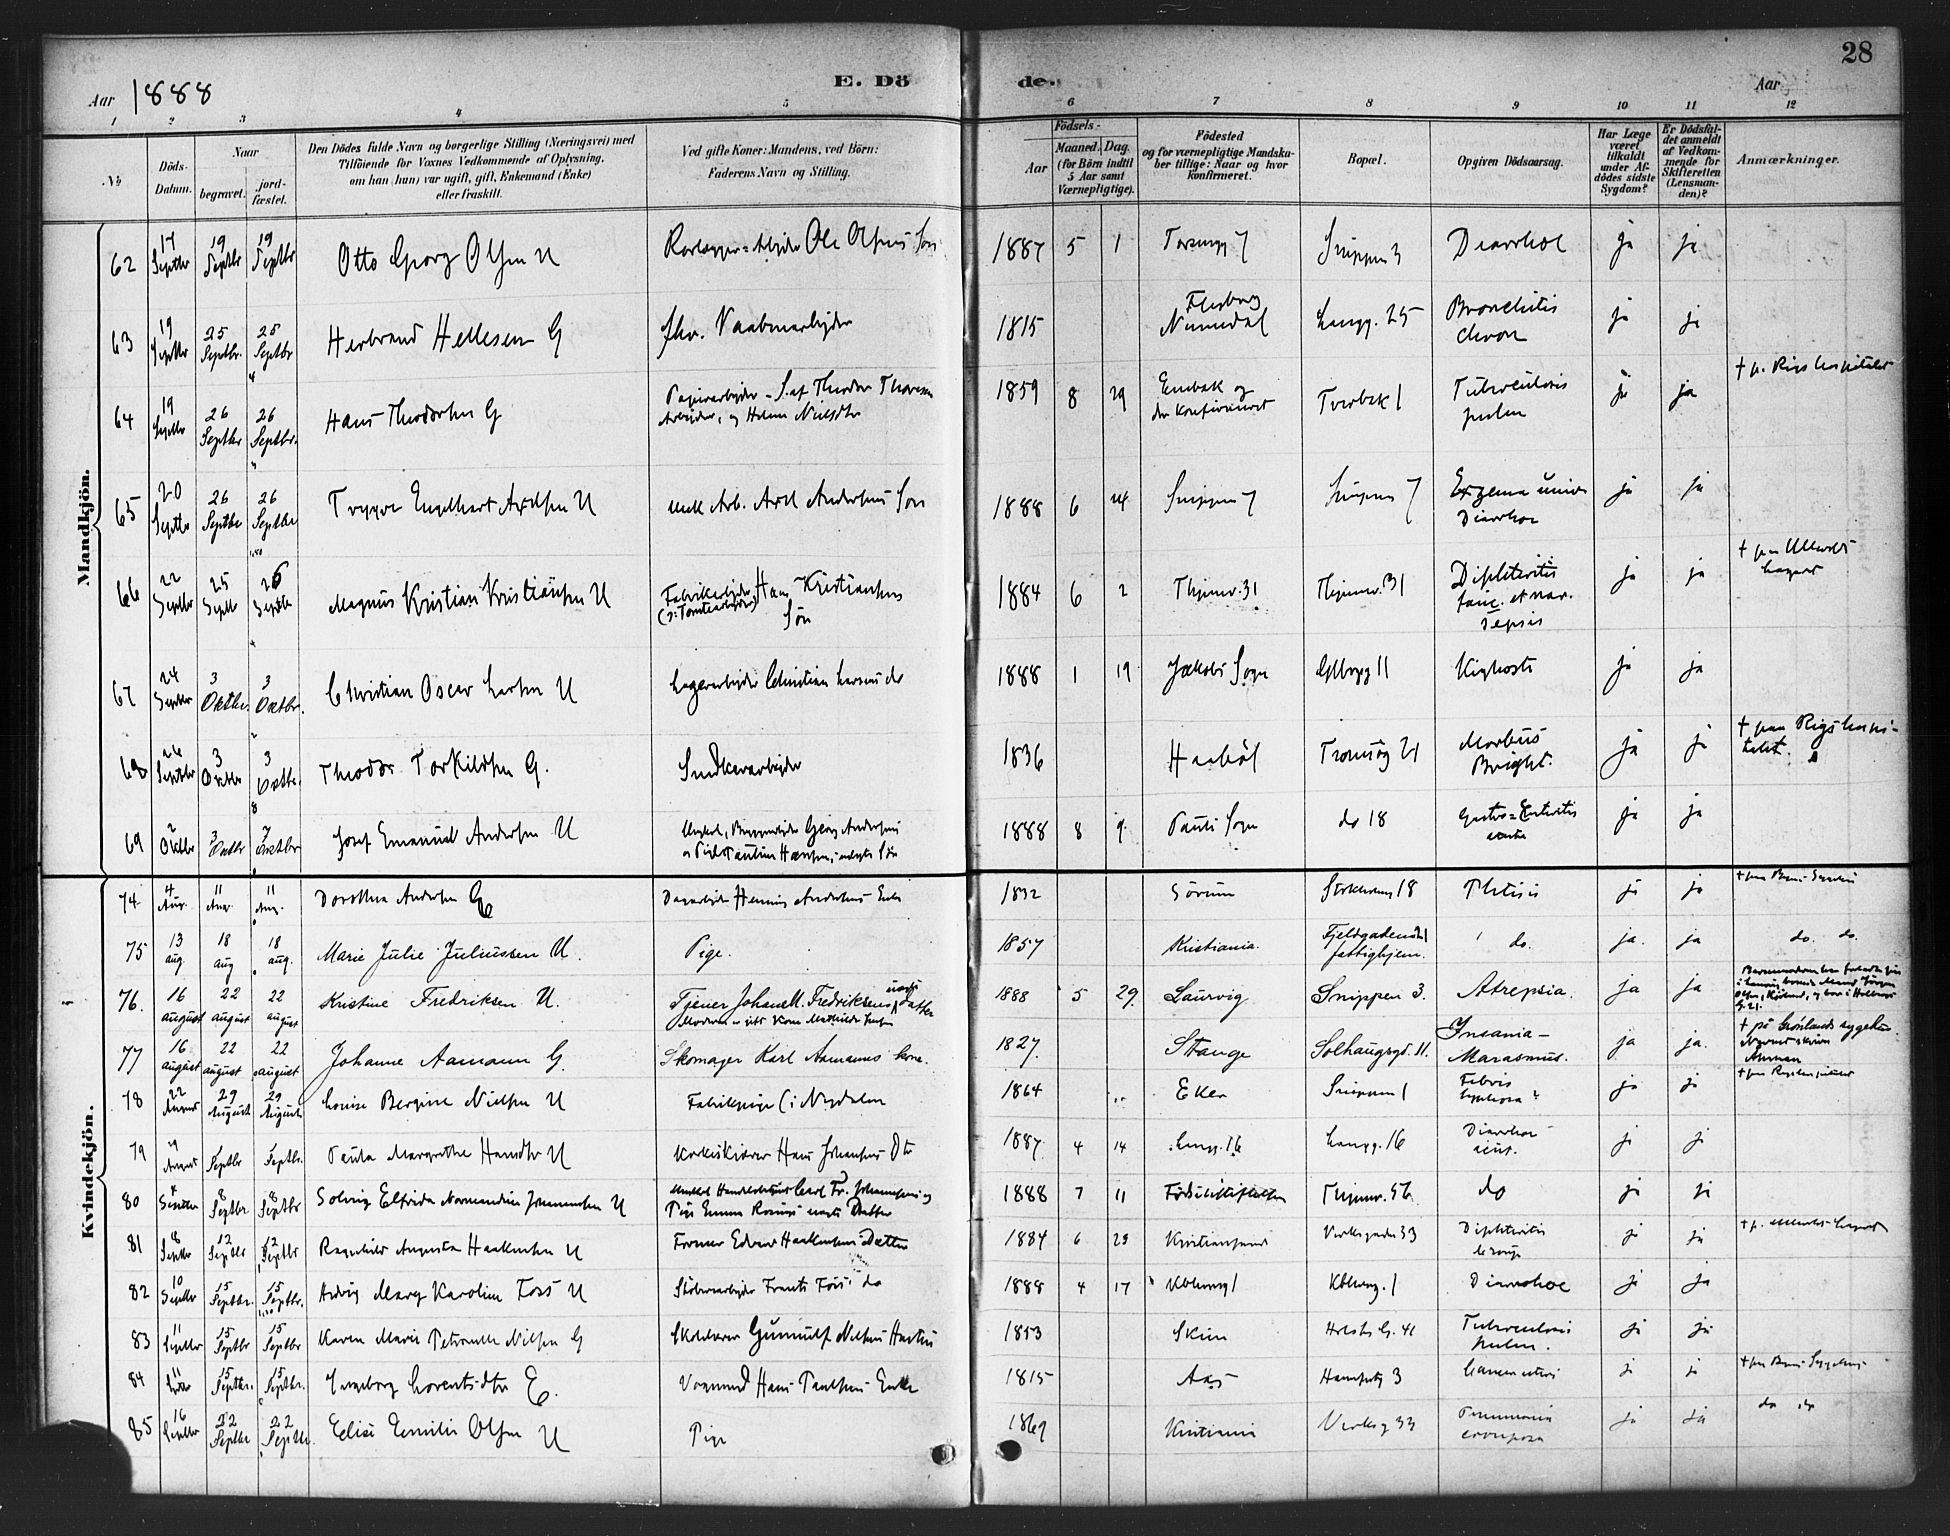 28
Aar 1888
E. Döde.
Aar
1 2 3 4 5 6 7 8 9 10 11 12
No
Döds-Datum.
Naar
begravet.
jord-fæstet.
Den Dödes fulde Navn og borgerlige Stilling (Næringsvei) med
Tilföiende for Voxnes Vedkommende af Oplysning,
om han (hun) var ugift, gift, Enkemand (Enke)
eller fraskilt.
Ved gifte Koner: Mandens, ved Börn:
Faderens Navn og Stilling.
Födsels-
Aar
Maaned. Dag.
(for Börn indtil
5 Aar samt
Værnepligtige).
Födested
og for værnepligtige Mandska-
ber tillige: Naar og hvor
konfirmeret.
Bopæl.
Opgiven Dödsaarsag.
Har Læge
været
tilkaldt
under Af-
dödes sidste
Sygdom?
Er Dödsfal-
det anmeldt
af Vedkom-
mende for
Skifteretten
(Lensman-
den)?
Anmærkninger.
Mandkjön.
62 17 Septbr 19 Septbr 19 Septbr Otto Georg Olsen U Arbejder Ole Olsens Søn 1887 5 1 7 Snippen 3 Diarrhoe ja ja
63 19 Septbr 25 Septbr. 25 Septbr Herbrand Hellesen G fhv. Vaabenarbejder 1815 Flesberg Numedal Langg. 25 Bronchitis chron ja ja
64 19 Septbr 26 Septbr 26 Septbr. Hans Theodorsen G Papirarbejder - S. af Theodor Thoresen Arbejder, og Helene Nielsdtr 1859 8 29 Enebak og der konfirmeret Tverbak 1 Tuberculosis pulm ja ja + p. Rigshospitalet
65 20 Septbr 26 Septbr 26 Septbr Trygve Engelhart Axelsen U Mek Arb. Axel Andersens Søn 1888 6 24 Snippen 7 Snippen 7 Exzema univ Diarrhoe ja ja
66 22 Septbr 25 Septbr 26 Septbr Magnus Kristian Kristiansen U Fabrikarbejder (ɔ: Tomtearbejder) Hans Kristiansens Søn 1884 6 2 Thjemv. 31 Thjemv. 31 Diphteritis fauc. et nar. Sepsis ja ja + paa Ullevolds Lazaret
67 24 Septbr 3 Oktbr. 3 Oktbr. Christian Oscar Larsen U Lagerarbejder Christian Larsens do 1888 1 19 Jakobs Sogn 11 Kighoste ja ja
68 26 Septbr 3 Oktbr 3 Oktbr. Theodor Torkildsen G. Snedkerarbejder 1836 Haabøl Tromsøg 21 Morbus Bright. ja ja + paa Rigshospitalet.
69 2 Oktbr 3 Oktbr 7 Oktbr Josef Emanuel Andersen U Ungkarl, Georg Andersens Søn 1888 8 9 Pauls Sogn do 18 Gastro-Enteritis acuta ja ja
Kvindekjön.
74 4 Aug. 11 Aug. 11 Aug. Dorothea Andersen E Dagarbejder Henning Andersens Enke 1832 Sörum Stockholmg 18 Phtisis ja ja
75 13 aug. 18 aug 18 aug. Marie Julie Juliussen U. Pige. 1857 Kristiania. Fjeldgadens fattighjem. do. ja. ja do. do.
76. 16 august 22 august 22 august Kristine Fredriksen U. Tjener Johan M. Fredriksens uægte Datter 1888 5 29. Laurvig Snippen 3. Atrepsia. ja ja
77 16 august 22 august 22 august Johanne Aamann G. Skomager Karl Aamanns kone. 1827. Stange Solhaugsgd. 11. Insania - Marasmus. ja ja. + på Grönlands sygehus
78 22 August 29 August 29 August Lovise Bergine Nielsen U Fabrikpige (i Nydalen 1864 Eker Snippen 1 Febris typhosa ? ja ja + paa Rigshospitalet
79 August Septbr Septbr. Paula Margrethe Hansdtr U Hans Johansens Dtr 1887. 4 14 Langg. 16 Langg. 16 Diarrhoe acut. ja ja
80 4 Septbr 8 Septbr 8 Septbr Solveig Elfrida Normandine Johannesen U Carl Fr. Johannesens og Pige Emma uægte Datter 1888 7 11 Födselsstiftelsen Thjemv. 56 do ja ja
81 8 Septbr 12 Septbr 12 Septbr Ragnhild Augusta Haakensen U Former Edvard Haakensens Datter 1884 6 23 Kristianssund Verksgaden 33 Diphteritis ja ja + p. Ullevolds Lazaret
82 10 Septbr 15 Septbr. 15 Septbr. Mary Karoline Foss U Støberarbejder Frants Foss' do 1888 4 17 1 1 Diarrhoe ja ja
83 11 Septbr 15 Septbr 15 Septbr Karen Marie Petronelle Nilsen G Skolelærer Gunnulf Nilsens Hustru 1853 Skien Holsts G. 41 Tuberculosis pulm. ja ja
84 11 Septbr 15 Septbr. 15 Septbr. Ingeborg Lorentsdtr E. Vognmand Hans Paulsens Enke 1815 Aas 3 ja ja
85 16 Septbr 22 Septbr 22 Septbr. Elise Emilie Olsen U Pige 1869 Kristiania Verksg 33 Pneumonia crouposa ja ja do do